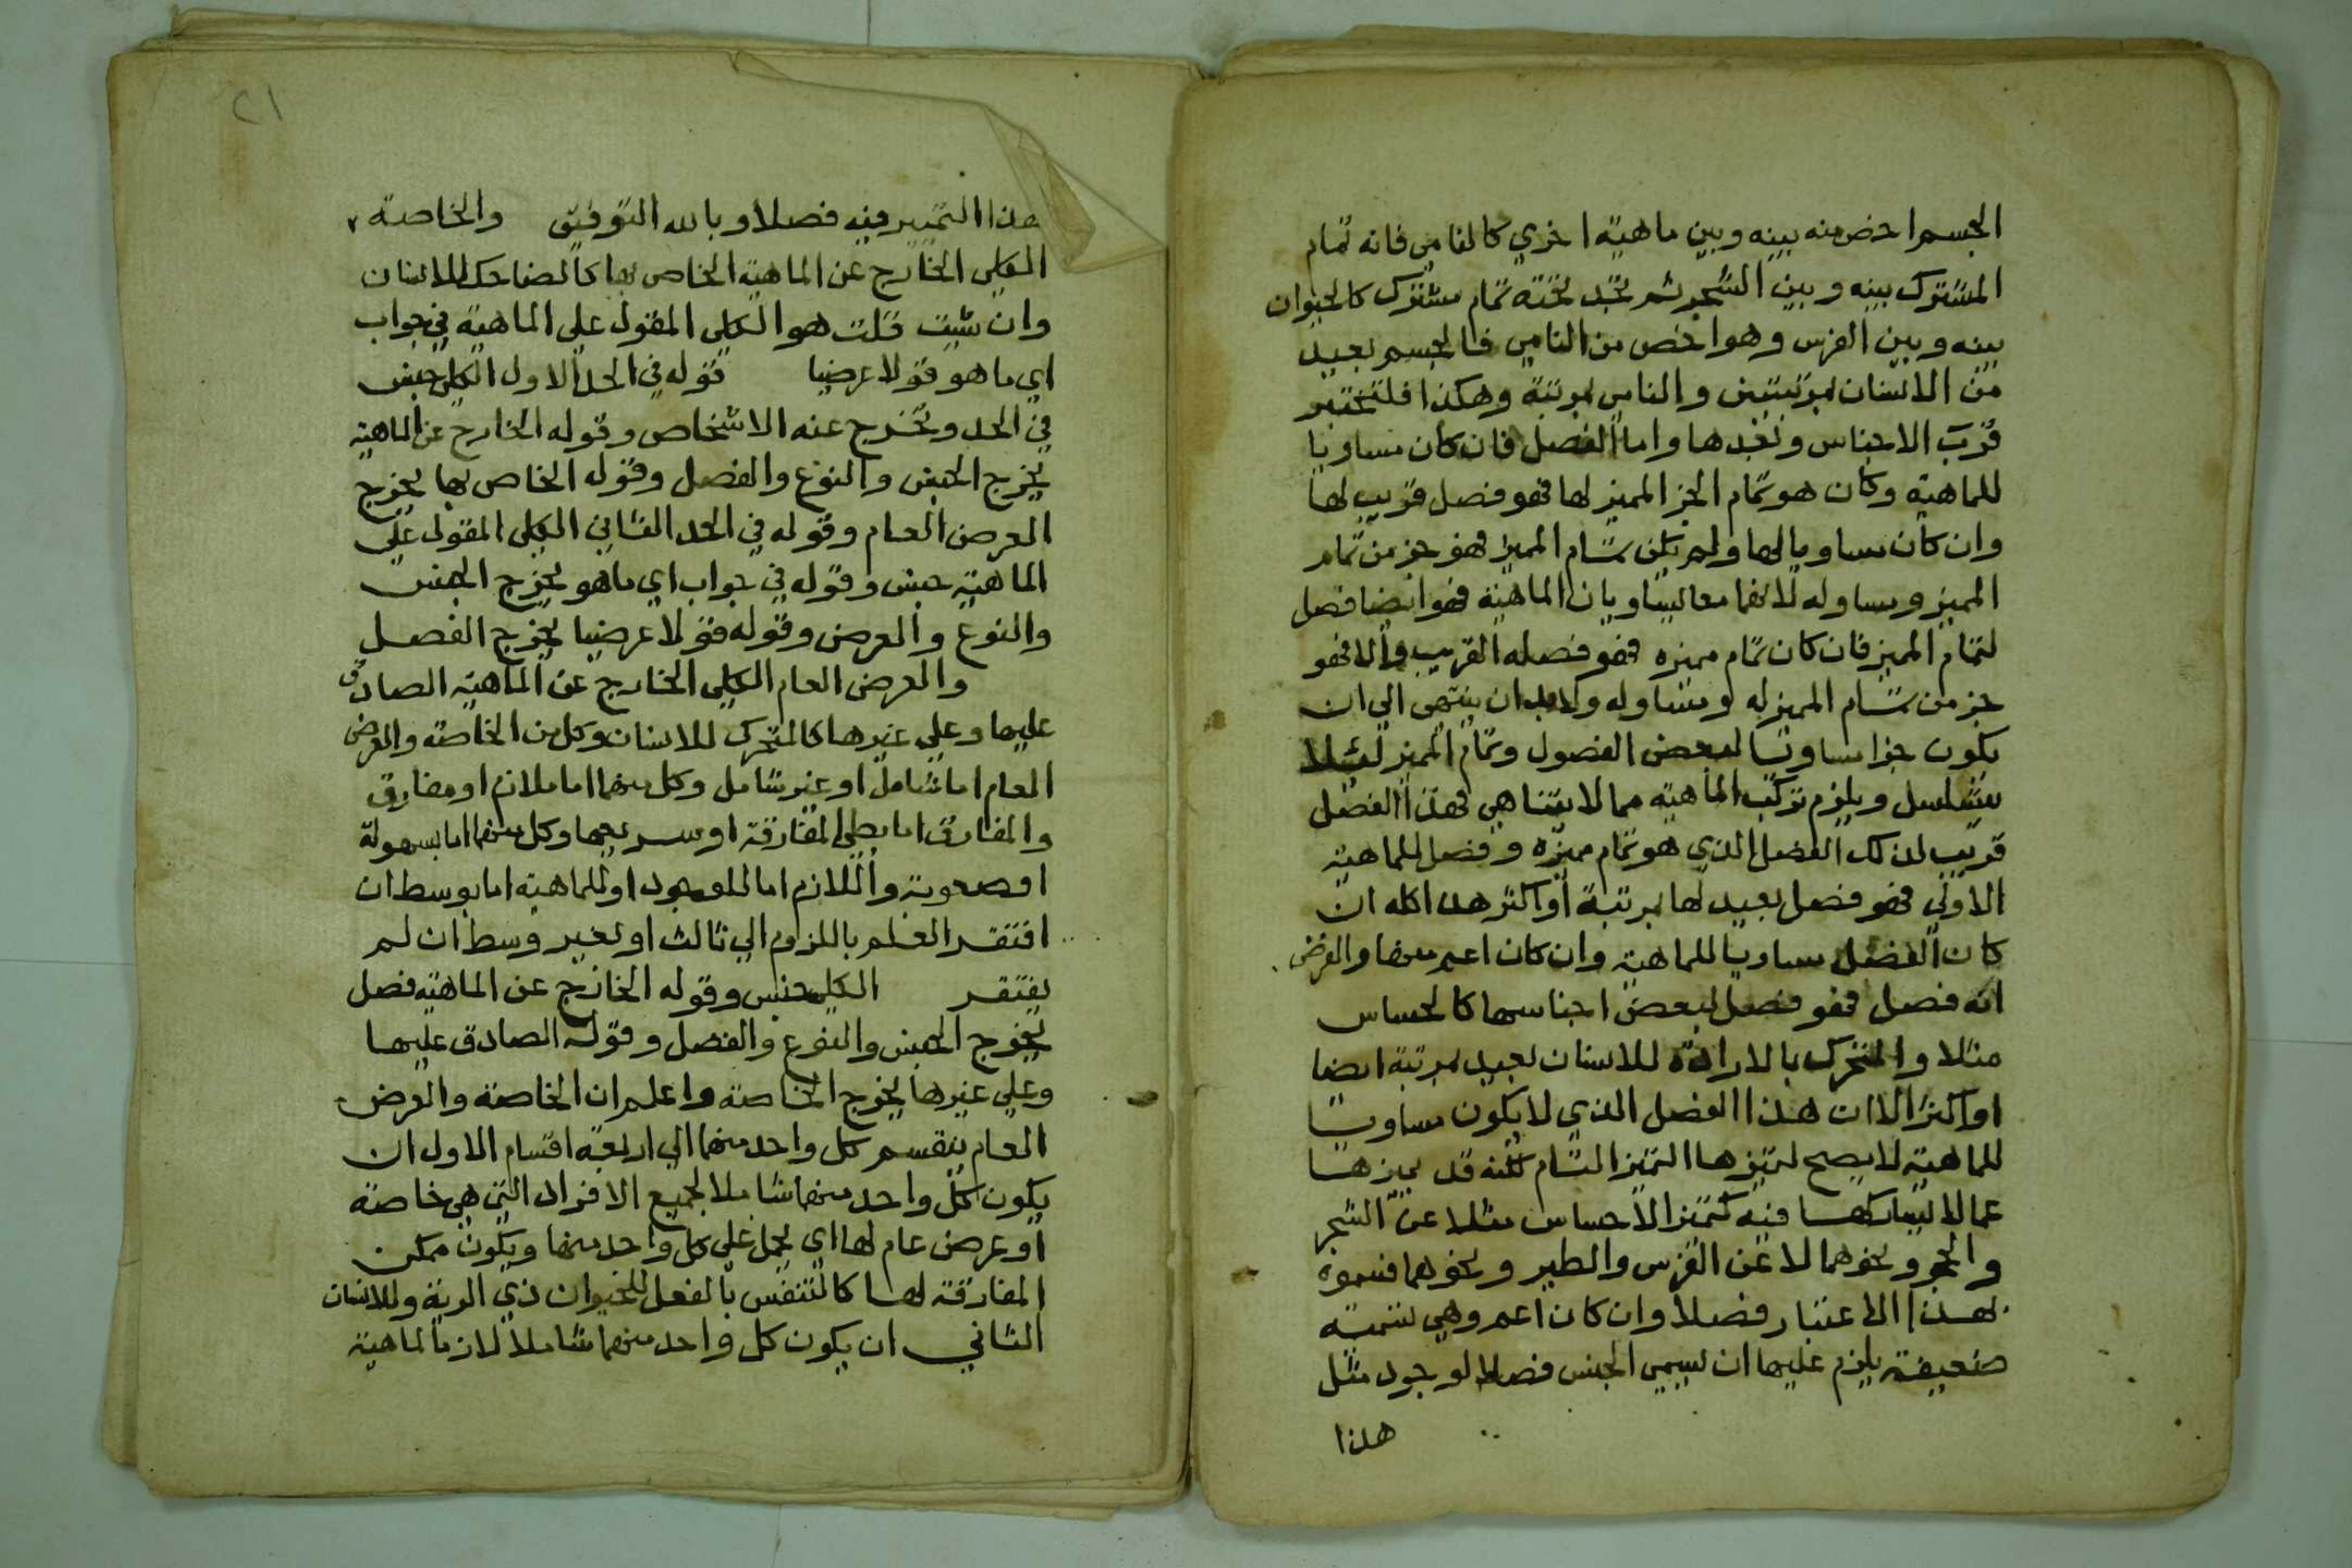 الجسم اخص منه بينه وبين ماهية اخري كالنامي فانه تمام
المشترك بينه وبين الشجر ثم تجد تحته تمام مشترك كالحيوان
بينه وبين الفرس وهو اخص من النامي فالجسم بعيد
من الانسان بمرتبتين والنامي بمرتبة وهكذا فلتختبر
قرب الاجناس وبعدها واما الفصل فان كان مساويا
للماهية وكان هو تمام الجز المميز لها فهو فصل قريب لها
وان كان مساويا لها ولم يكن تمام المميز فهو جز من تمام
المميز ومساو له لانهما معا يساويان الماهية فهو ايضا فصل
لتمام المميز فان كان تمام مميزه فهو فصله القريب والا فهو
جز من تمام المميز له ومساو له ولابد ان ينتهي الي ان
يكون جزا مساويا لبعض الفصول وتمام المميز لئلا
يتسلسل ويلزم تركب الماهية مما لا يتناهي فهذا الفصل
قريب لذلك الفصل الذي هو تمام مميزه وفصل للماهية
الاولي فهو فصل بعيد لها بمرتبة او اكثر هذا كله ان
كان الفصل مساويا للماهية وان كان اعم منها والفرض
انه فصل فهو فصل لبعض اجناسها كالحساس
مثلا والمتحرك بالارادة للانسان بعيد بمرتبة ايضا
او اكثر الا ان هذا الفصل الذي لا يكون مساويا
للماهية لا يصح لتميزها التميز التام لكنه قد يميزها
عما لا يشاركها فيه كتميز الاحساس مثلا عن الشجر
والحجر ونحوهما لا عن الفرس والطير ونحوهما فسموه
بهذا الاعتبار فصلا وان كان اعم وهي تسمية
ضعيفة يلزم عليها ان يسمي الجنس فصلا لوجود مثل
هذا
٢١
هذا التمييز فيه فصلا وبالله التوفيق والخاصة
الكلي الخارج عن الماهية الخاص بها كالضاحك للانسان
وان شيت قلت هو الكلي المقول علي الماهية في جواب
اي ما هو قولا عرضيا قوله في الحد الاول الكلي جنس
في الحد وتخرج عنه الاشخاص وقوله الخارج عن الماهية
يخرج الجنس والنوع والفصل وقوله الخاص بها يخرج
العرض العام وقوله في الحد الثاني الكلي المقول علي
الماهية جنس وقوله في جواب اي ما هو يخرج الجنس
والنوع والعرض وقوله قولا عرضيا يخرج الفصل
والعرض العام الكلي الخارج عن الماهية الصادق
عليها وعلي غيرها كالمتحرك للانسان وكل من الخاصة والعرض
العام اما شامل او غير شامل وكل منهما اما ملازم او مفارق
والمفارق اما بطي المفارقة او سريعها وكل منهما اما بسهولة
اوصعوبة واللازم اما للوجود او للماهية اما بوسط ان
افتقر العلم باللزوم الي ثالث او بغير وسط ان لم
يفتقر الكلي جنس وقوله الخارج عن الماهية فصل
يخرج الجنس والنوع والفصل وقوله الصادق عليها
وعلي غيرها يخرج الخاصة واعلم ان الخاصة والعرض
العام ينقسم كل واحد منهما الي اربعة اقسام الاول ان
يكون كل واحد منهما شاملا لجميع الافراد التي هي خاصة
او عرض عام لها اي يحمل علي كل واحد منها ويكون ممكن
المفارقة لها كالتنفس بالفعل للحيوان ذي الرية وللانسان
الثاني ان يكون كل واحد منهما شاملا لازما لماهية